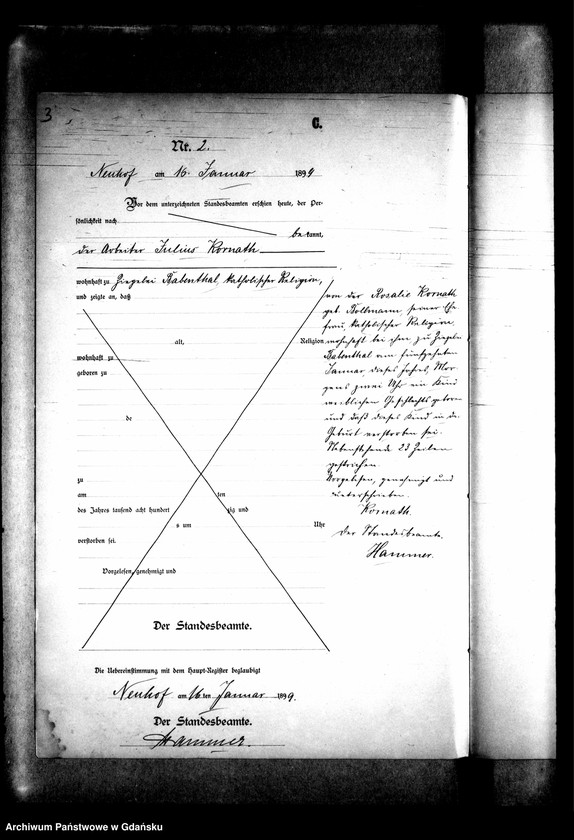 3
C.
Nr. 2.
Neuhof am 16. Januar 1899
Vor dem unterzeichneten Standesbeamten erschien heute, der Per-
sönlichkeit nach
bekannt,
der Arbeiter Julius Kornath
wohnhaft zu Ziegelei Rabenthal, katholischer Religion,
und zeigte an, daß
alt, Religion
wohnhaft zu
geboren zu
de
zu
am ten
des Jahres tausend acht hundert zig und
s um Uhr
verstorben sei.
Vorgelesen, genehmigt und
Der Standesbeamte.
von der Rosalie Kornath
geb. Bollmann, seiner Ehe
frau, katholischer Religion,
wohnhaft bei ihm zu Ziegelei
Rabenthal am fünfzehnten
Januar dieses Jahres, Mor
gens zwei Uhr ein Kind
weiblichen Geschlechts geboren
und daß dieses Kind in der
Geburt verstorben sei.
Nebenstehende 23 Zeilen
gestrichen.
Vorgelesen, genehmigt und
unterschrieben.
Kornath
Der Standesbeamte.
Hammer.
Die Uebereinstimmung mit dem Haupt-Register beglaubigt
Neuhof am 16ten Januar 1899.
Der Standesbeamte.
Hammer.
Archiwum Państwowe w Gdańsku